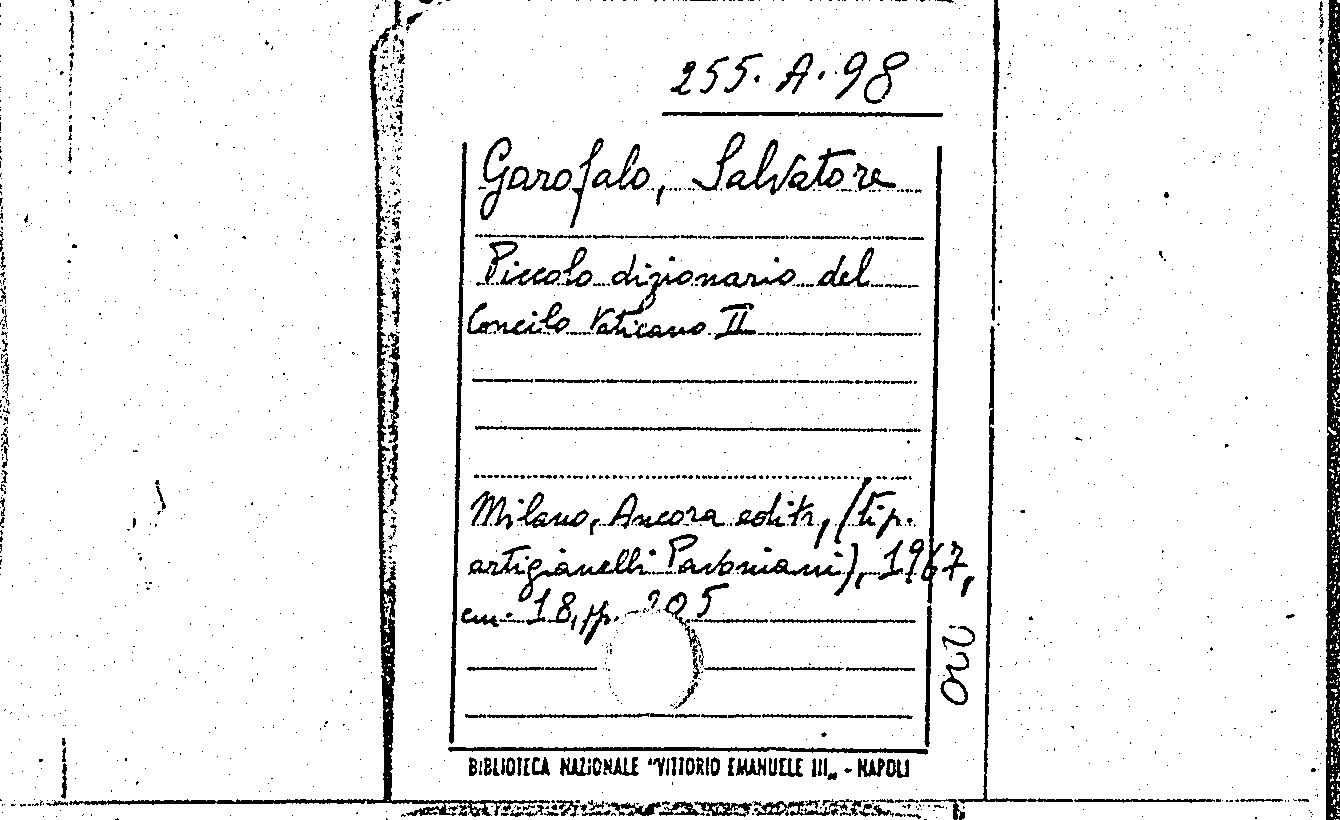 255. A. 98
Garofalo, Salvatore
Piccolo dizionario del
Concilo Vaticano II
Milano, Ancora editr, (tip.
artigianelli Pavoniani), 1967,
cm. 18, pp. 205
BIBLIOTECA NAZIONALE "VITTORIO EMANUELE III„ - NAPOLI